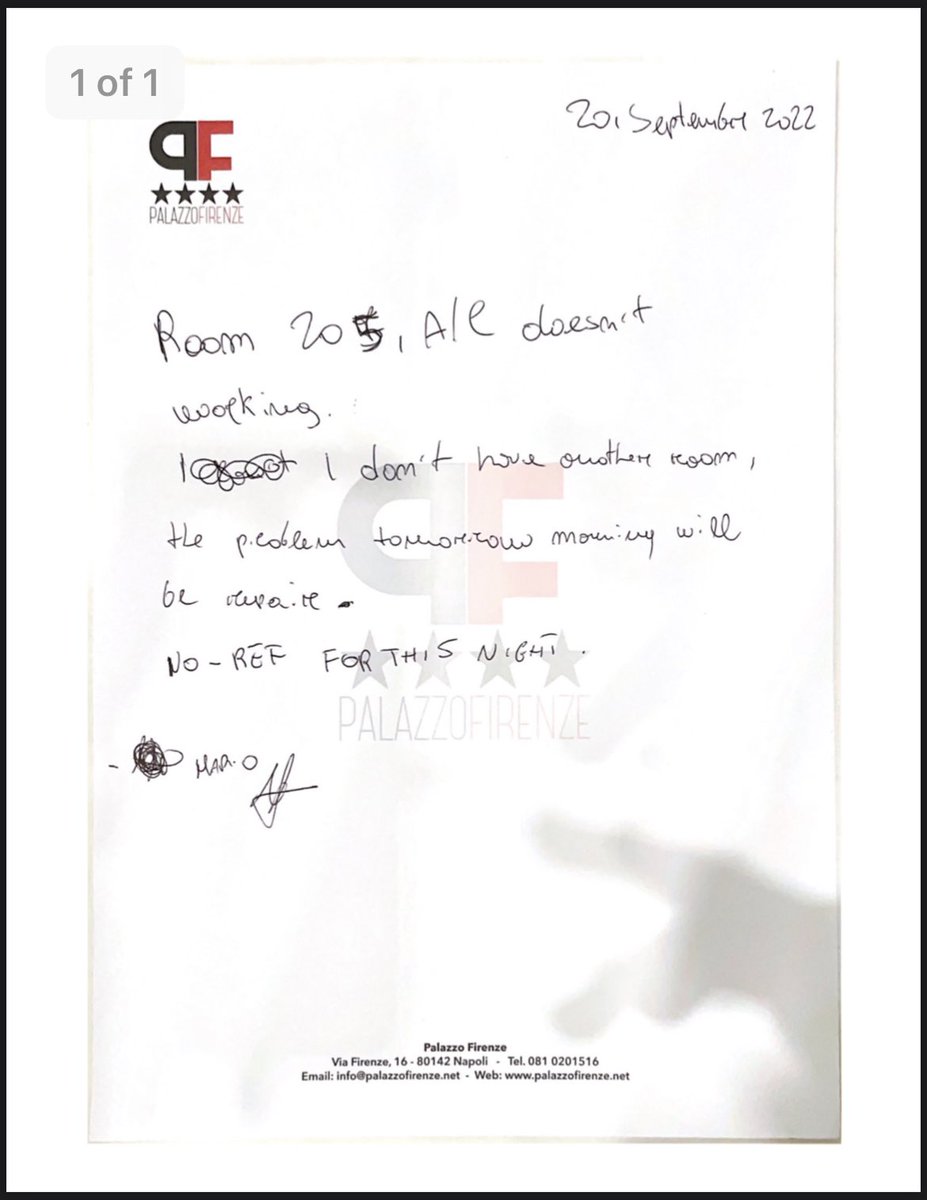 1 of 1
20, Septembre 2022
PF
PALAZZOFIRENZE
Room 205, A/C doesn't
working.
I I don't have another room,
the problem tomorrow morning will
be repaire.
NO-REF FOR THIS NIGHT.
PF
PALAZZOFIRENZE
- MARIO
Palazzo Firenze
Via Firenze, 16 - 80142 Napoli - Tel. 081 0201516
Email: info@palazzofirenze.net - Web: www.palazzofirenze.net